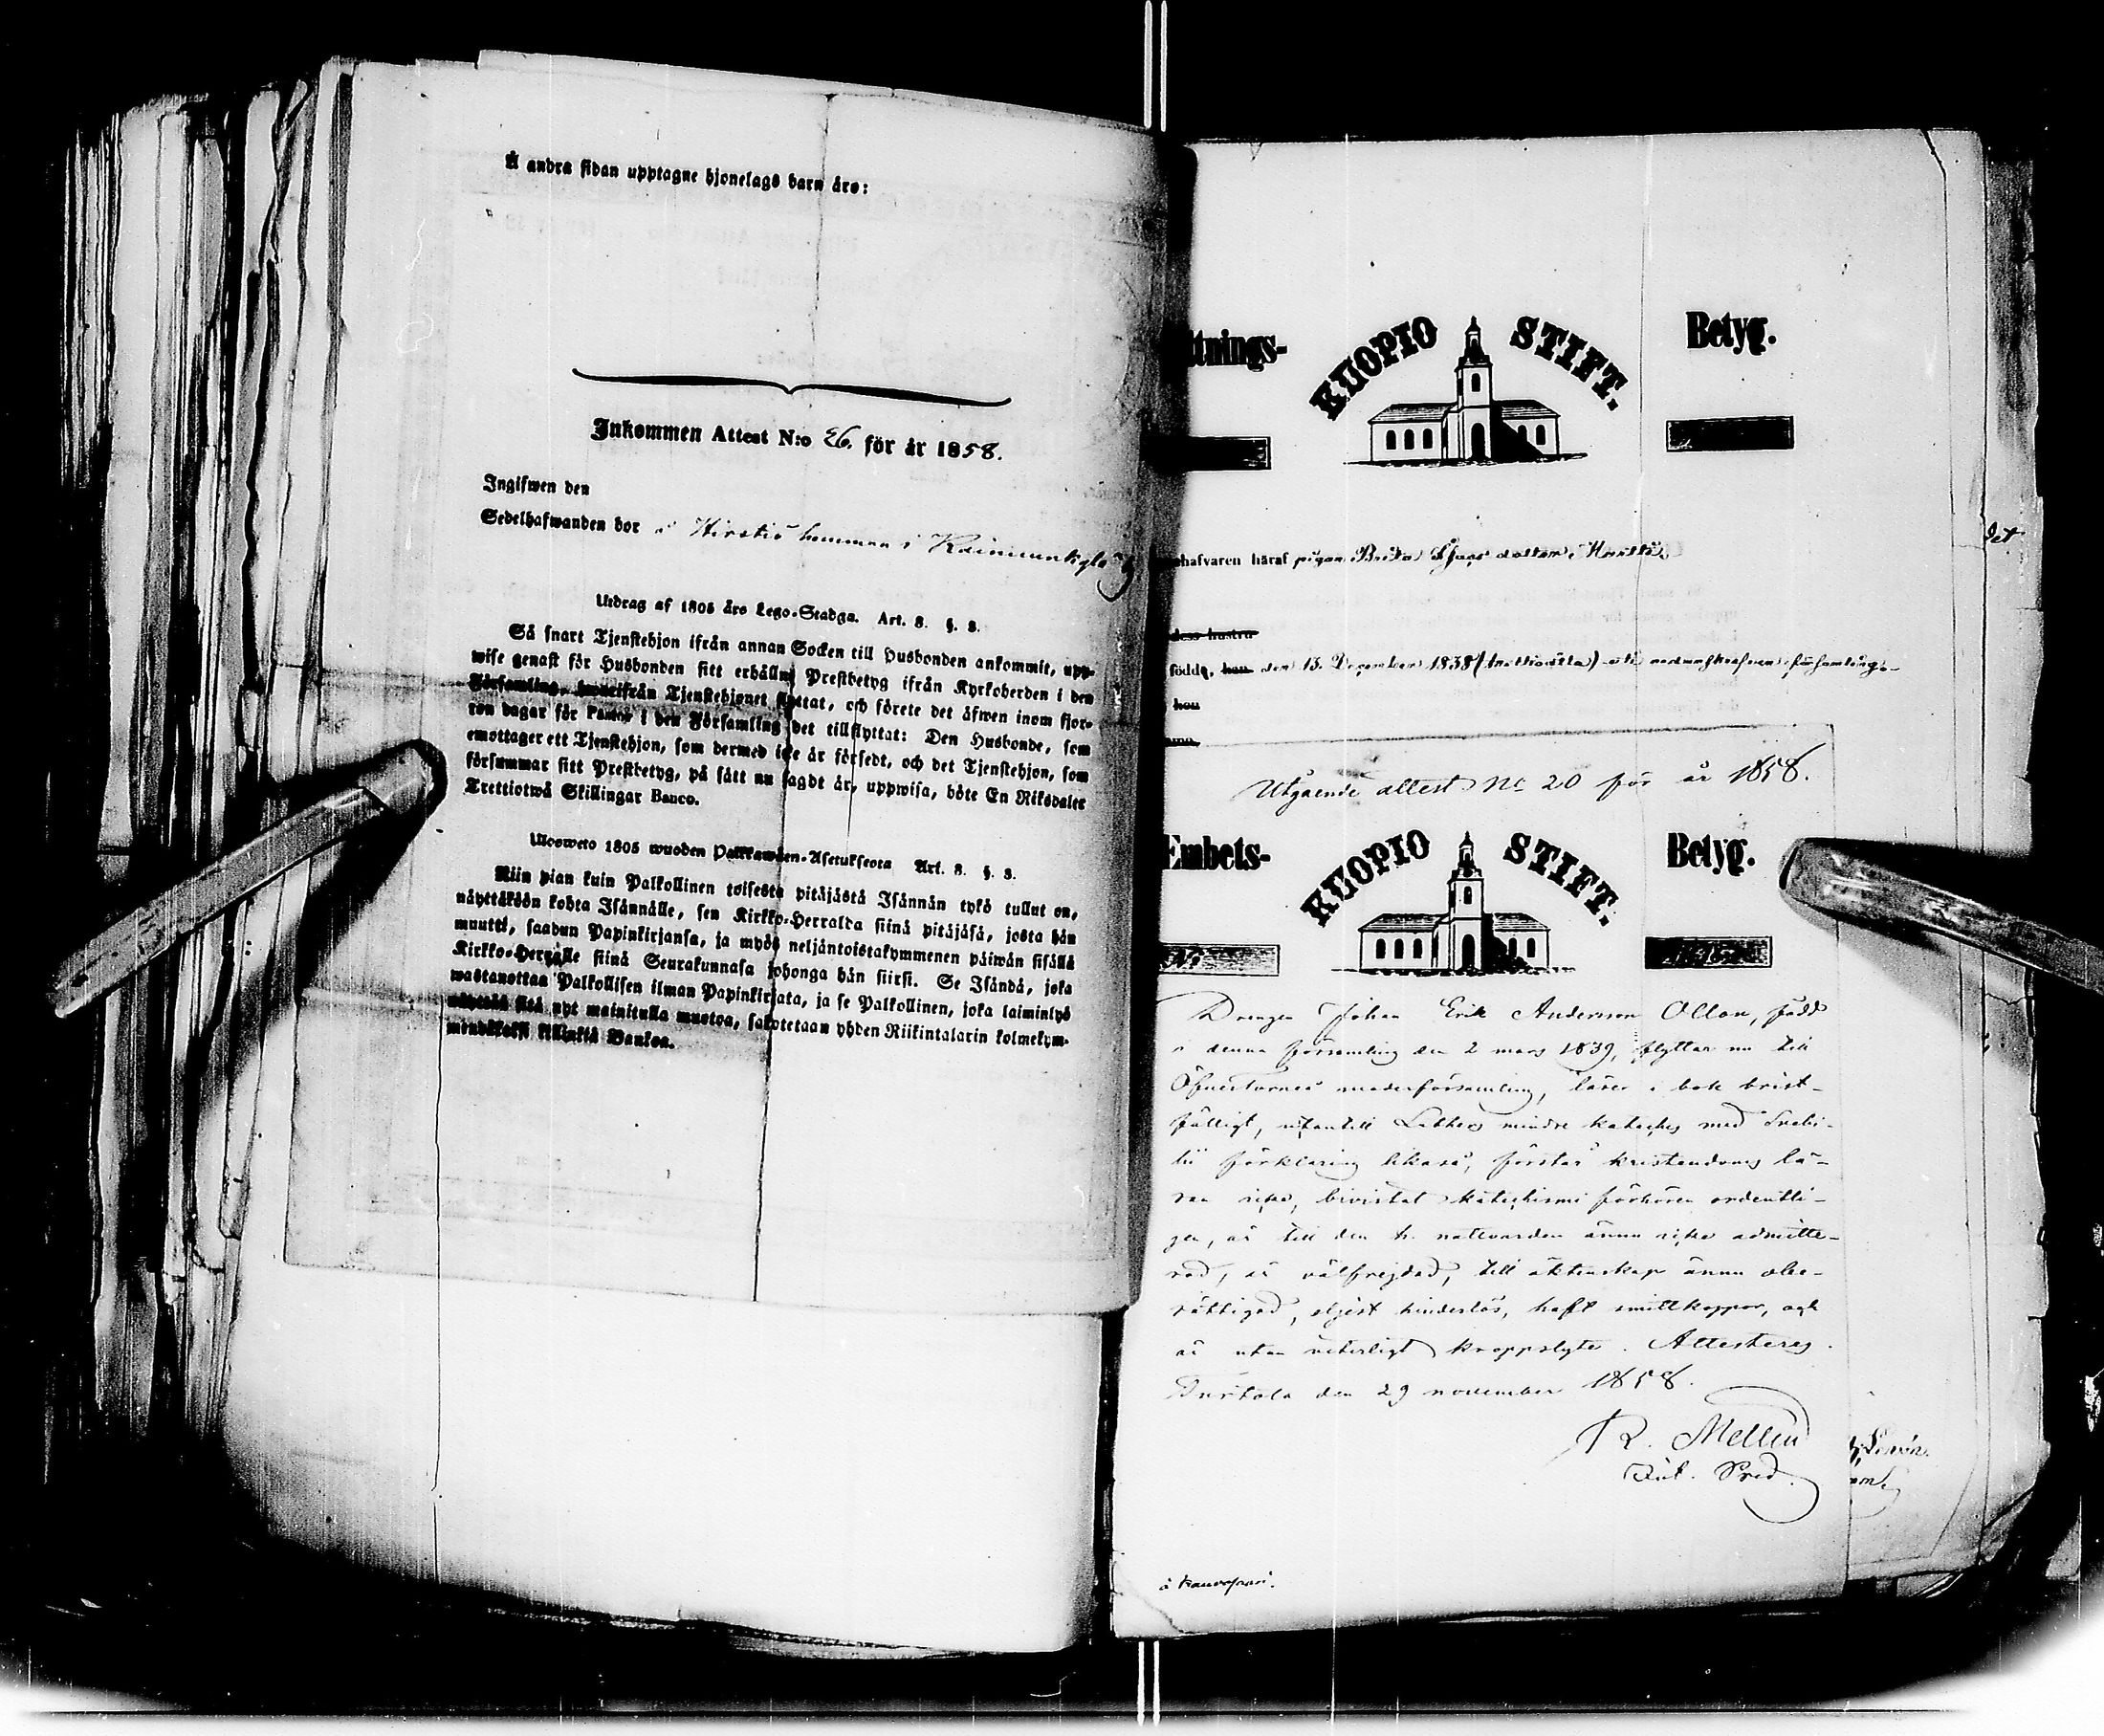 Å andra sidan upptagne hjonelags barn äro:
Inkommen Attest N:o 26. för år 1858.
Ingifwen den
Sedelhafwanden bor å Hirstiö hemman i Kainuunkylä by
Utdrag af 1805 års Lego-Stadga. Art. 8. §. 8.
Så snart Tjenstehjon ifrån annan Socken till Husbonden ankommit, upp-
wise genast för Husbonden sitt erhållna Prestbetyg ifrån Kyrkoherden i den
Församling, hwarifrån Tjenstehjonet flyttat, och förete det äfwen inom fjor-
ton dagar för Pastor i den Församling det tillflyttat: Den Husbonde, som
emottager ett Tjenstehjon, som dermed icke är försedt, och det Tjenstehjon, som
försummar sitt Prestbetyg, på sätt nu sagdt är, uppwisa, böte En Riksdaler
Trettiotwå Skillingar Banco.
Ulosweto 1805 wuoden Palkkawäen-Asetuksesta Art. 8. §. 8.
Niin pian kuin Palkollinen toisesta pitäjästä Isännän tykö tullut on,
näyttäköön kohta Isännälle, sen Kirkko-Herralta siinä pitäjäsä, josta hän
muutti, saadun Papinkirjansa, ja myös neljäntoistakymmenen päiwän sisällä
Kirkko-Herralle siinä Seurakunnasa johonga hän siirsi. Se Isändä, joka
wastanottaa Palkollisen ilman Papinkirjata, ja se Palkollinen, joka laiminlyö
näyttää sitä nyt mainitulla muotoa, sakotetaan yhden Riikintalarin kolmekym-
mendäkaksi killinkiä Bankoa.
ttnings- KUOPIO STIFT. Betyg.
det
hafvaren häraf pigan Brita dotter
dess hustru
född, han den 13. December 1838 (trettioåtta) uti nedanskrefven församling,
hon
Utgående attest No 20 för år 1858.
Embets- KUOPIO STIFT. Betyg.
No
Drengen Johan Erik Andersson Ollon, född
i denna församling den 2 mars 1839, flyttar nu till
Öfvertorneå moderförsamling, läser i bok brist-
fälligt, utantill Luthers mindre kateches med Svebi-
lii förklaring likaså, förstår kristendoms lä-
ran icke, bivistat katechismi förhören ordentli-
gen, är till den h. nattvarden ännu icke admitte-
rad, är välfrejdad, till äktenskap ännu obe-
rättigad, eljest hinderlös, haft smittkoppor, och
är utan veterligt kroppslyte. Attesteras.
Turtola den 29 november 1858.
R. Mellin
Pred.